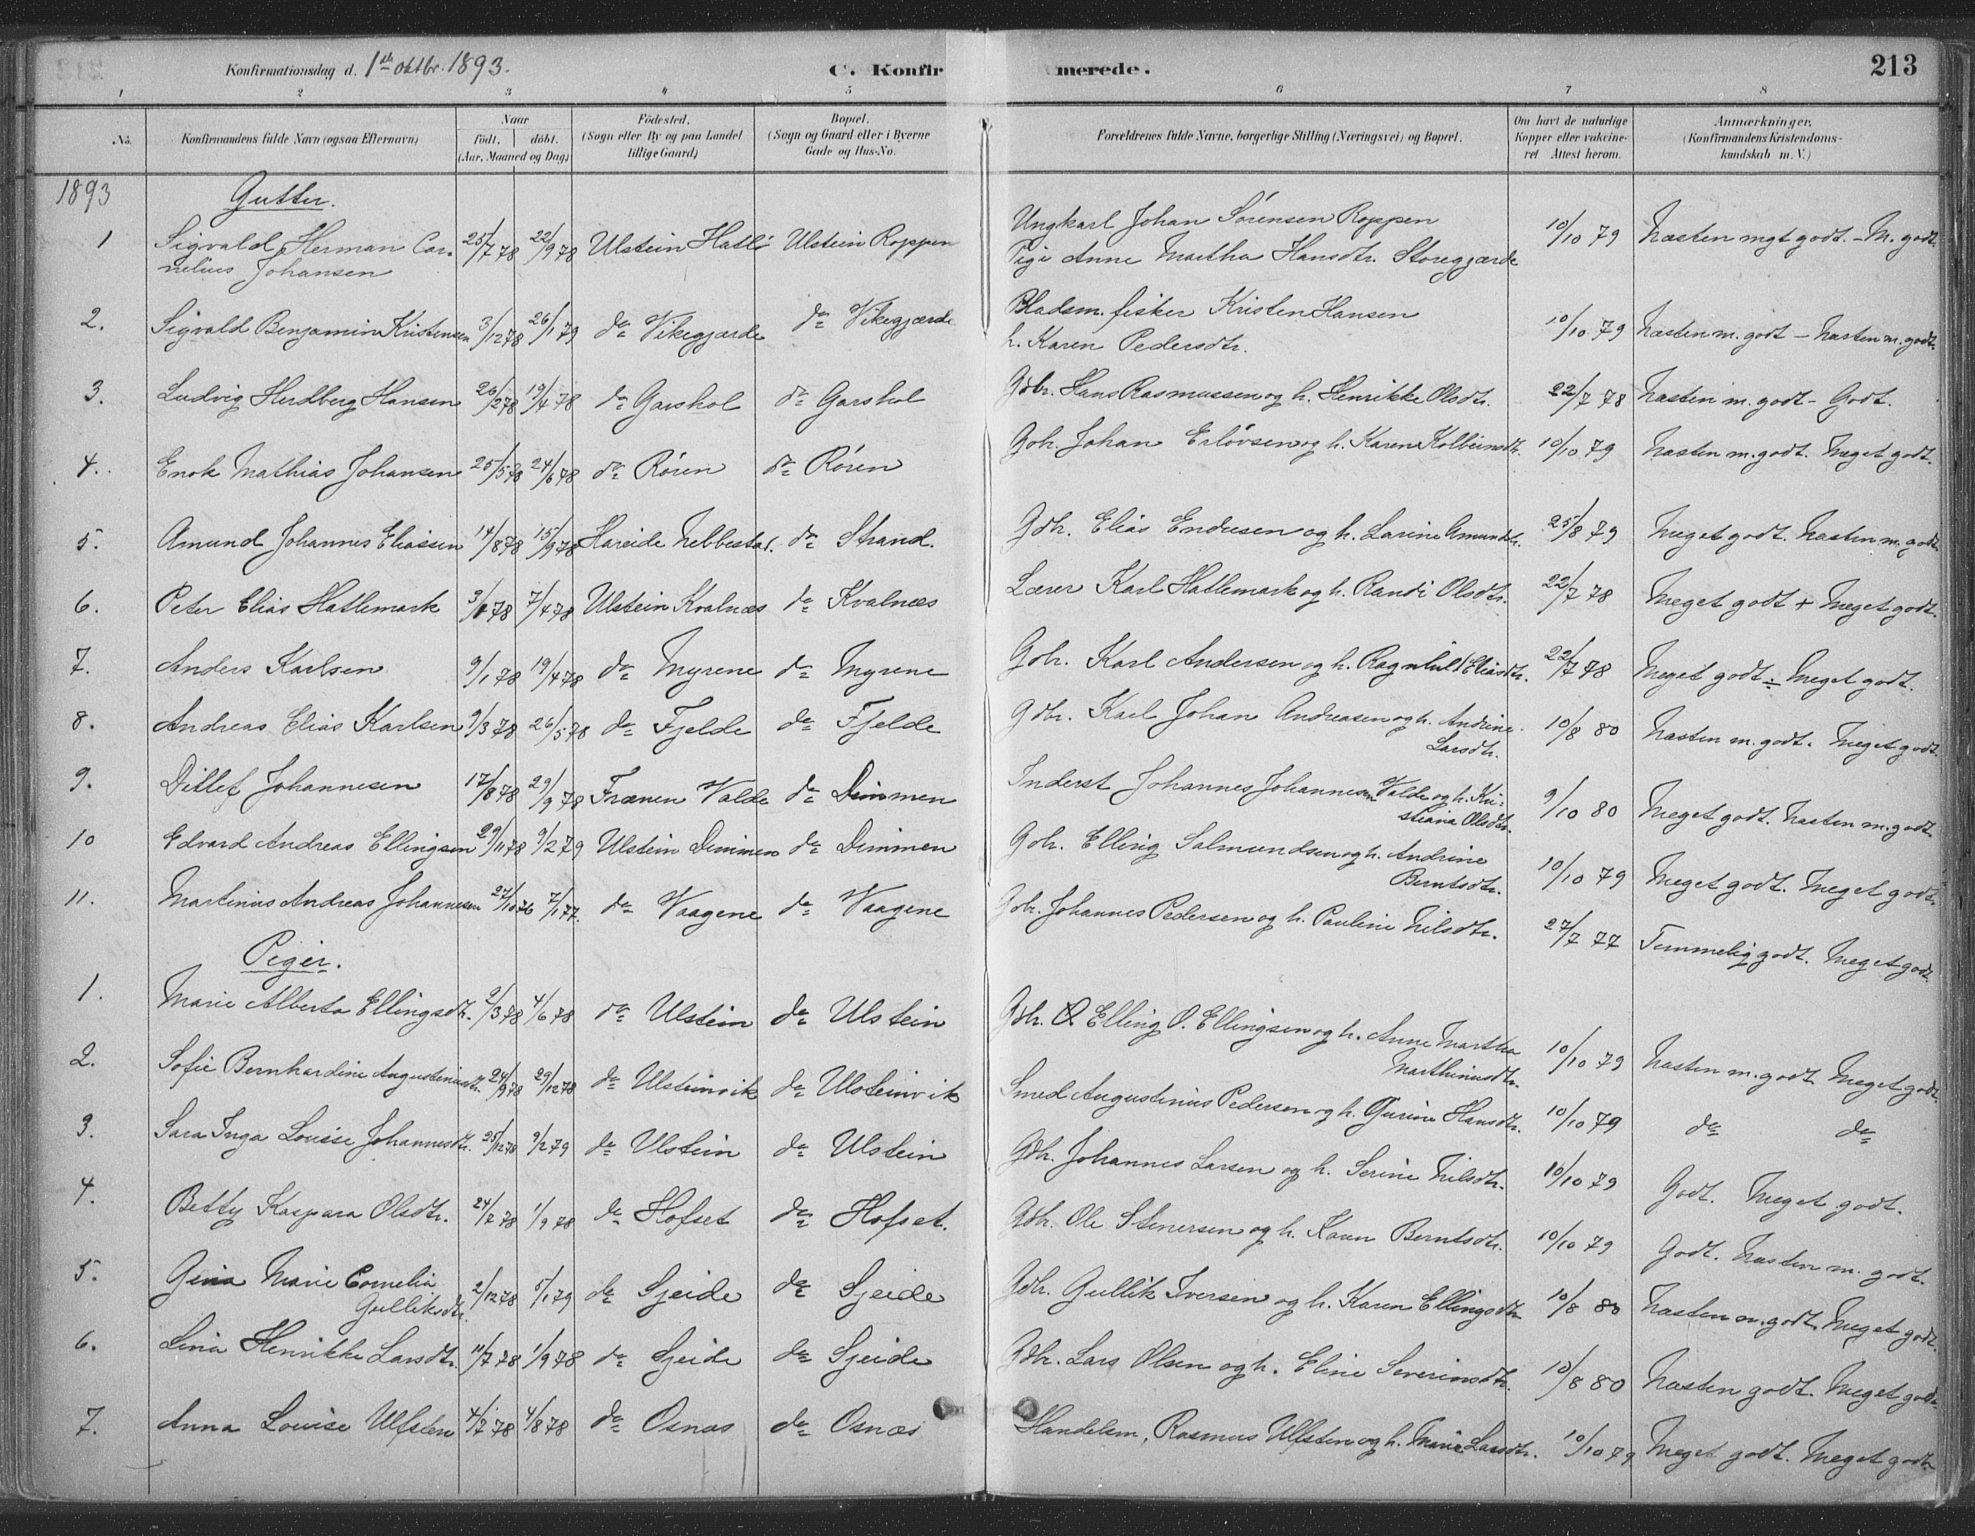 Konfirmationsdag d. 1ste oktbr. 1893. C. Konfirmerede. 213
1 2 3 4 5 6 7 8
No. Konfirmandens fulde Navn (ogsaa Efternavn) Naar født. døbt. (Aar, Maaned og Dag) Fødested. (Sogn eller By og paa Landet tillige Gaard) Bopæl. (Sogn og Gaard eller i Byerne Gade og Hus-No. Forældrenes fulde Navne, borgerlige Stilling (Næringsvei) og Bopæl. Om havt de naturlige Kopper eller vakcineret Attest herom. Anmærkninger. (Konfirmandens Kristendomskundskab m. V.)
1893 Gutter.
1 Sigvald Herman Cornelius Johansen 25/7 78 22/9 78 Ulstein Hatlø Ulstein Roppen Ungkarl Johan Sørensen Roppen Pige Anne Martha Hansdtr. Storegjærde 10/10 79 Næsten mgt godt. - M. godt.
2. Sigvald Benjamin Kristensen 3/12 78 26/1 79 do Vikegjærde do Vikegjærde Pladsm. fisker Kristen Hansen h. Karen Pedersdtr. 10/10 79 Næsten m. godt - Næsten m. godt.
3. Ludvig Herdberg Hansen 26/2 78 19/4 78 do Garshol do Garshol Gdbr. Hans Rasmussen og h. Henrikke Olsdtr. 22/7 78 Næsten m. godt - Godt.
4. Enok Mathias Johansen 25/5 78 24/6 78 do Røren do Røren Gdh. Johan Erløvsen og h. Karen Kolbeinsdtr. 10/10 79 Næsten m. godt. Meget godt.
5. Amund Johannes Eliassen 14/8 78 15/9 78 Hareide Nebbestad. do Strand. Gdh. Elias Endresen og h. Larine Amundtr. 25/8 79 Meget godt. Næsten m. godt
6. Peter Elias Hatlemark 3/1 78 7/4 78 Ulstein Kvalnæs do Kvalnæs Lærer Karl Hatlemark og h. Randi Olsdtr. 22/7 78 Meget godt + Meget godt.
7. Anders Karlsen 9/1 78 19/4 78 do Myrene do Myrene Gdbr. Karl Andersen og h. Ragnhild Eliasdtr. 22/7 78 Meget godt ÷ Meget godt.
8. Andreas Elias Karlsen 9/3 78 26/5 78 do Fjelde do Fjelde Gdbr. Karl Johan Andreasen og h. Andrine Larsdtr. 10/8 80 Næsten m. godt. Meget godt.
9. Ditlef Johannesen 17/8 78 29/9 78 Frænen Valde do Dimmen Inderst Johannes Johannesen Valde og h. Kristiana Olsdtr. 9/10 80 Meget godt. Næsten m. godt
10 Edvard Andreas Ellingsen 29/11 78 9/2 79 Ulstein Dimmen do Dimmen Gdh. Elling Salmundsen og h. Andrine Berntsdtr. 10/10 79 Meget godt. Meget godt.
11. Martinus Andreas Johannesen 27/10 76 7/1 77. do Vaagene do Vaagene Gdbr. Johannes Pedersen og h. Pauline Nilsdtr. 27/7 77 Temmelig godt. Meget godt
Piger.
1. Marie Alberta Ellingsdtr. 2/3 78 4/6 78 do Ulstein do Ulstein Gdh. Elling O. Ellingsen og h. Anne Martha Marthinusdtr. 10/10 79 Næsten m. godt. Meget godt.
2. Sofie Bernhardine Augustinusdtr. 24/9 78 29/12 78 do Ulsteinvik do Ulsteinvik Smed Augustinus Pedersen og h. Gurine Hansdtr. 10/10 79 do do
3. Sara Inga Lovise Johannesdtr. 25/12 78 9/2 79 do Ulstein do Ulstein Gdh. Johannes Larsen og h. Serine Nilsdtr. 10/10 79 Godt. Meget godt.
4. Betty Kaspara Olsdtr. 24/7 78 1/9 78 do Hofset do Hofset. Gdh. Ole Stenersen og h. Karen Berntsdtr. 10/10 79 Godt. Næsten m. godt.
5. Gina Marie Cornelia Gulliksdtr. 2/12 78 5/1 79 do Sjeide do Sjeide Gdh. Gullik Iversen og h. Karen Ellingsdtr 10/8 80 Næsten m. godt. Meget godt.
6. Lina Henrikke Larsdtr. 11/7 78 1/9 78 do Sjeide do Sjeide Gdh. Lars Olsen og h. Eline Severinsdtr. 10/8 80 Næsten godt. Meget godt.
7. Anna Lovise Ulfsten 4/7 78 4/8 78 do Osnæs do Osnæs Handelsm. Rasmus Ulfsten og h. Marie Larsdtr. 10/10 79 Meget godt. Meget godt